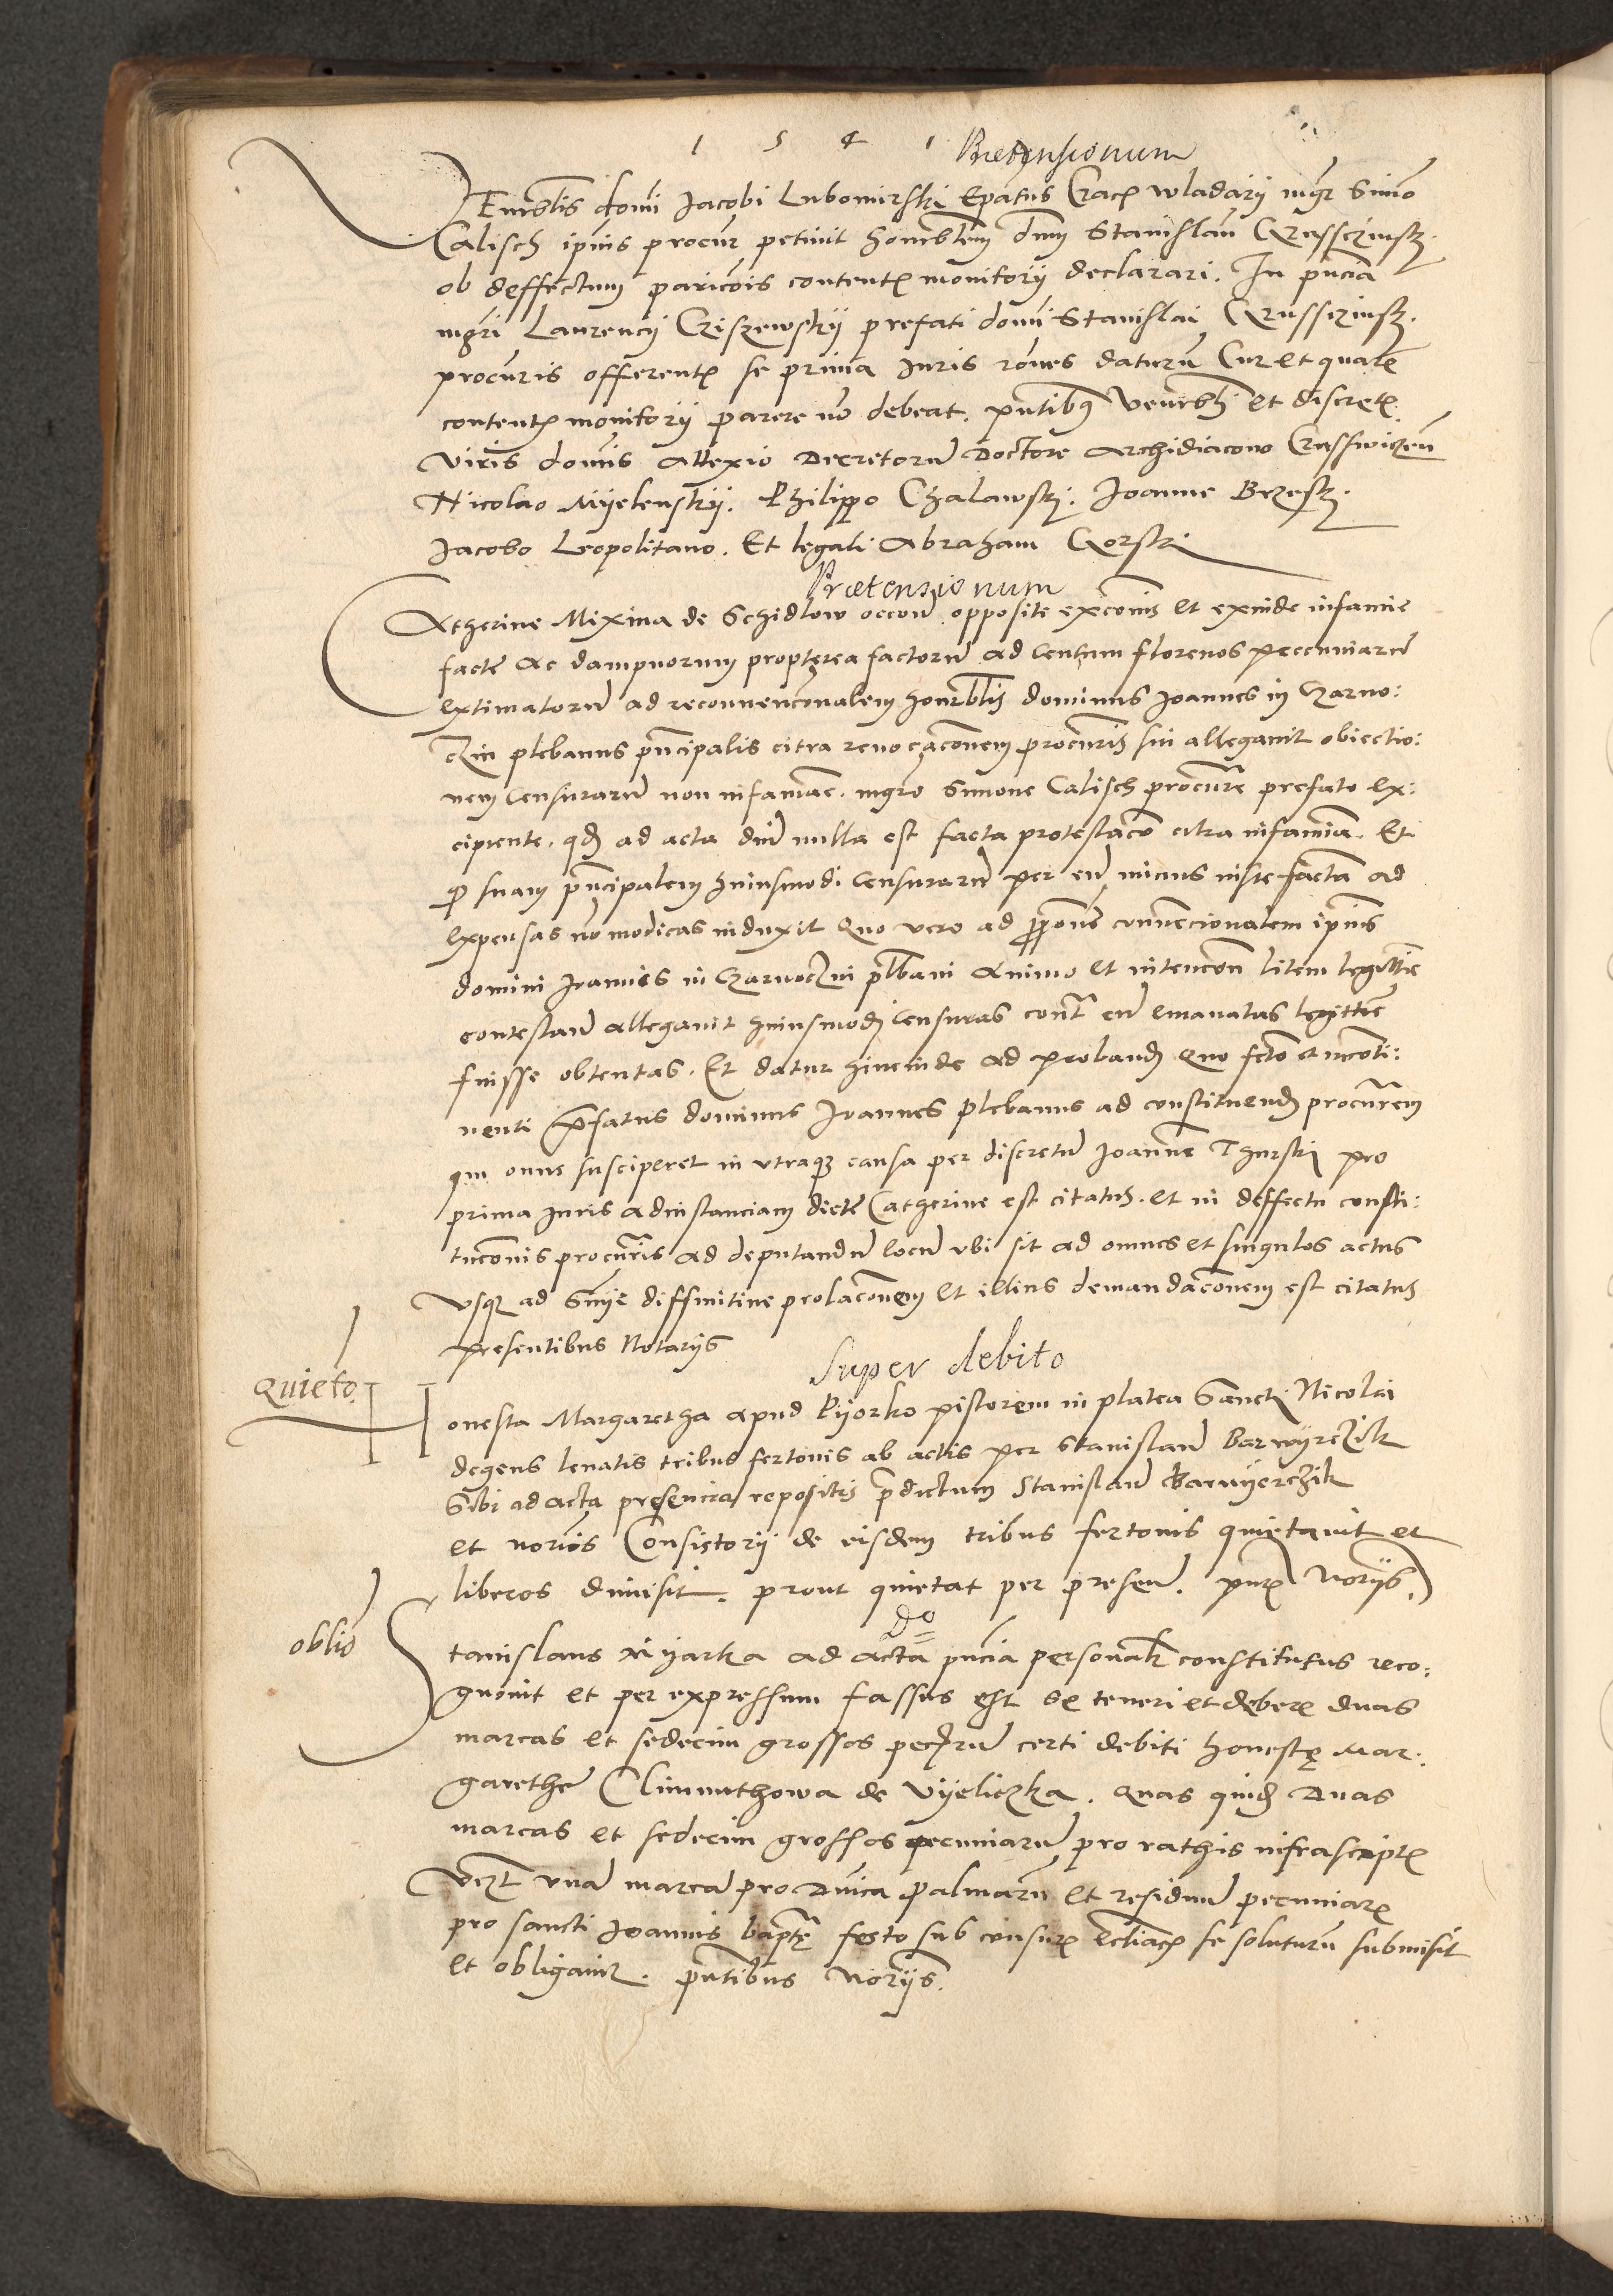 1 5 4 1 Praetensionum
Venerabilis domini Jacobi Lubomirski Epatus Crac wladarij mgr Simo
Calisch ipius procur petiuit honorblem dnm Stanislaum Crussczinsk.
ob deffectum paricois content monitorij declarari. In pncia
mgri Laurencij Criszewskij prefati domi Stanislai Crussczinsk.
procuris offerent se prima Juris rones daturu Cur et quare
content monitorij parere no debeat. pntibus venerabli et discret
viris domis Allexio Decretoru Doctore Archidiacono Crusswicen
Nicolao Myelenskij. Philippo Chalawski. Joanne Brzesk.
Jacobo Leopolitano. Et legali Abraham Gorski
Praetensionum
Catherine Mixina de Schidlow occon opposite excois et exinde infamie
facte ac dampnorum propterea factoru ad centum florenos peccuniaru
extimatoru ad reconuenconalem honorblis dominus Joannes in Czarno:
czin plebanus pncipalis citra reuocaconem procuris sui allegauit obiectio:
nem censuraru non infamiae. mgro Simone Calisch procure prefato ex:
cipiente. qd ad acta dni nulla est facta protestaco citra infamia. Et
p suam pncipalem huiusmodi censuraru per eu minus iuste facta ad
expensas no modicas induxit Quo vero ad ppone conuencionalem ipius
domini Joannis in Czarnoczin plbani animo et intencon litem legittie
contestan allegauit huiusmodi censuras cont eu emanatas legittie
fuisse obtentas. Et datur hincinde ad proband Quo fcto et inconti:
nenti pfatus dominus Joannes plebanus ad constituend procurem
qui onus susciperet in vtraque causa per discretu Joanne Thurski pro
prima Juris ad instanciam dicte Catherine est citatus. et in deffectu consti:
tuconis procuris ad deputandu locu vbi sit ad omnes et singulos actus
vsque ad Snie diffinitiue prolaconem et illius demandaconem est citatus
presentibus Notarijs
Super debito
Quieto.
Honesta Margaretha apud Pyorko pistorem in platea Sancti Nicolai
degens leuatis tribus fertonis ab actis per Stanislau Barwyerczik
Sibi ad acta presencia repositis pdictum Stanislau Barwyerczik
et norios Consistorij de eisdem tribus fertonis quietauit et
liberos dimisit. prout quietat per presen. pnt Norijs.
do
oblio
Stanislaus Myarka ad acta pncia personalr constitutus reco:
gnouit et per expressum fassus est se teneri et debere duas
marcas et sedecim grossos pecuniaru certi debiti honeste Mar:
garethe Climunthowa de Vyeliczka. Quas quid Duas
marcas et sedecim grossos pecuniaru pro rathis infrascript
vczt vna marca pro Dnica palmaru et residuu pecuniar
pro sancti Joannis bapte festo sub censur eccliac se soluturu submisit
et obligauit. pntibus Norijs.